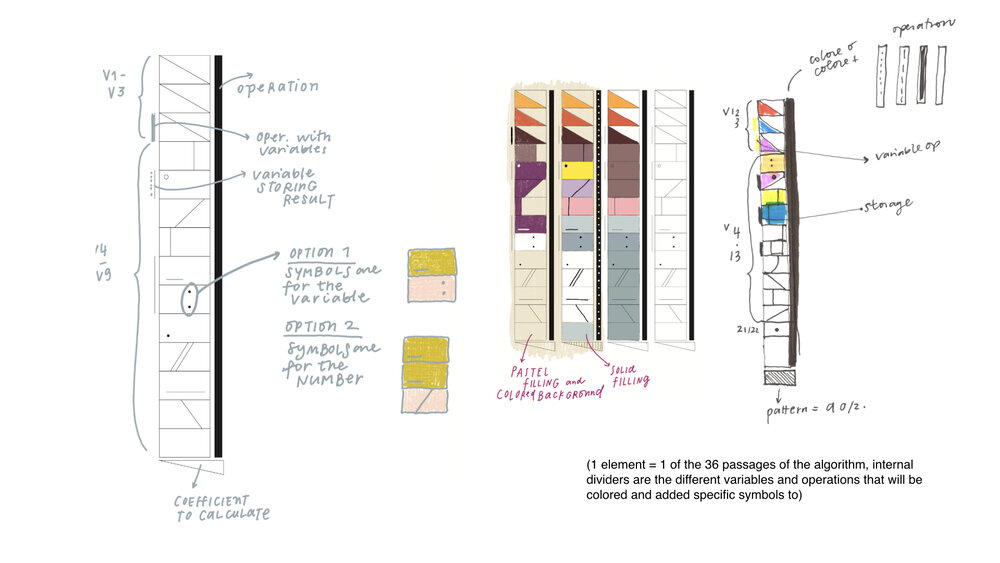 V1-
V3
OPERATION
OPER. WITH
VARIABLES
VARIABLE
STORING
RESULT
V4
-
V9
OPTION 1
SYMBOLS are
for the
VARIABLE
OPTION 2
SYMBOLS are
for the
NUMBER
COEFFICIENT
TO CALCULATE
PASTEL
FILLING and
COLORED BACKGROUND
SOLID
FILLING
operation
colore o
colore +
V12
3
variable op
storage
V 4
.
13
21/22
pattern =
(1 element = 1 of the 36 passages of the algorithm, internal
dividers are the different variables and operations that will be
colored and added specific symbols to)